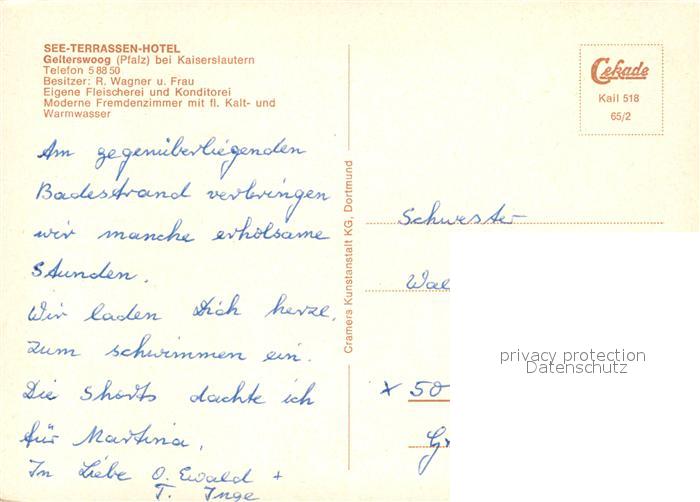 SEE-TERRASSEN-HOTEL
Gelterswoog (Pfalz) bei Kaiserslautern
Telefon 5 88 50
Besitzer: R. Wagner u. Frau
Eigene Fleischerei und Konditorei
Moderne Fremdenzimmer mit fl. Kalt- und
Warmwasser
Am gegenüberliegenden
Badestrand verbringen
wir manche erholsame
Stunden.
Wir laden Dich herzl.
zum schwimmen ein.
Die Shorts dachte ich
für Martina.
In Liebe O. Ewald +
T. Inge
Cramers Kunstanstalt KG, Dortmund
Cekade
Kail 518
65/2
Schwester
Wal
x 50
privacy protection
Datenschutz